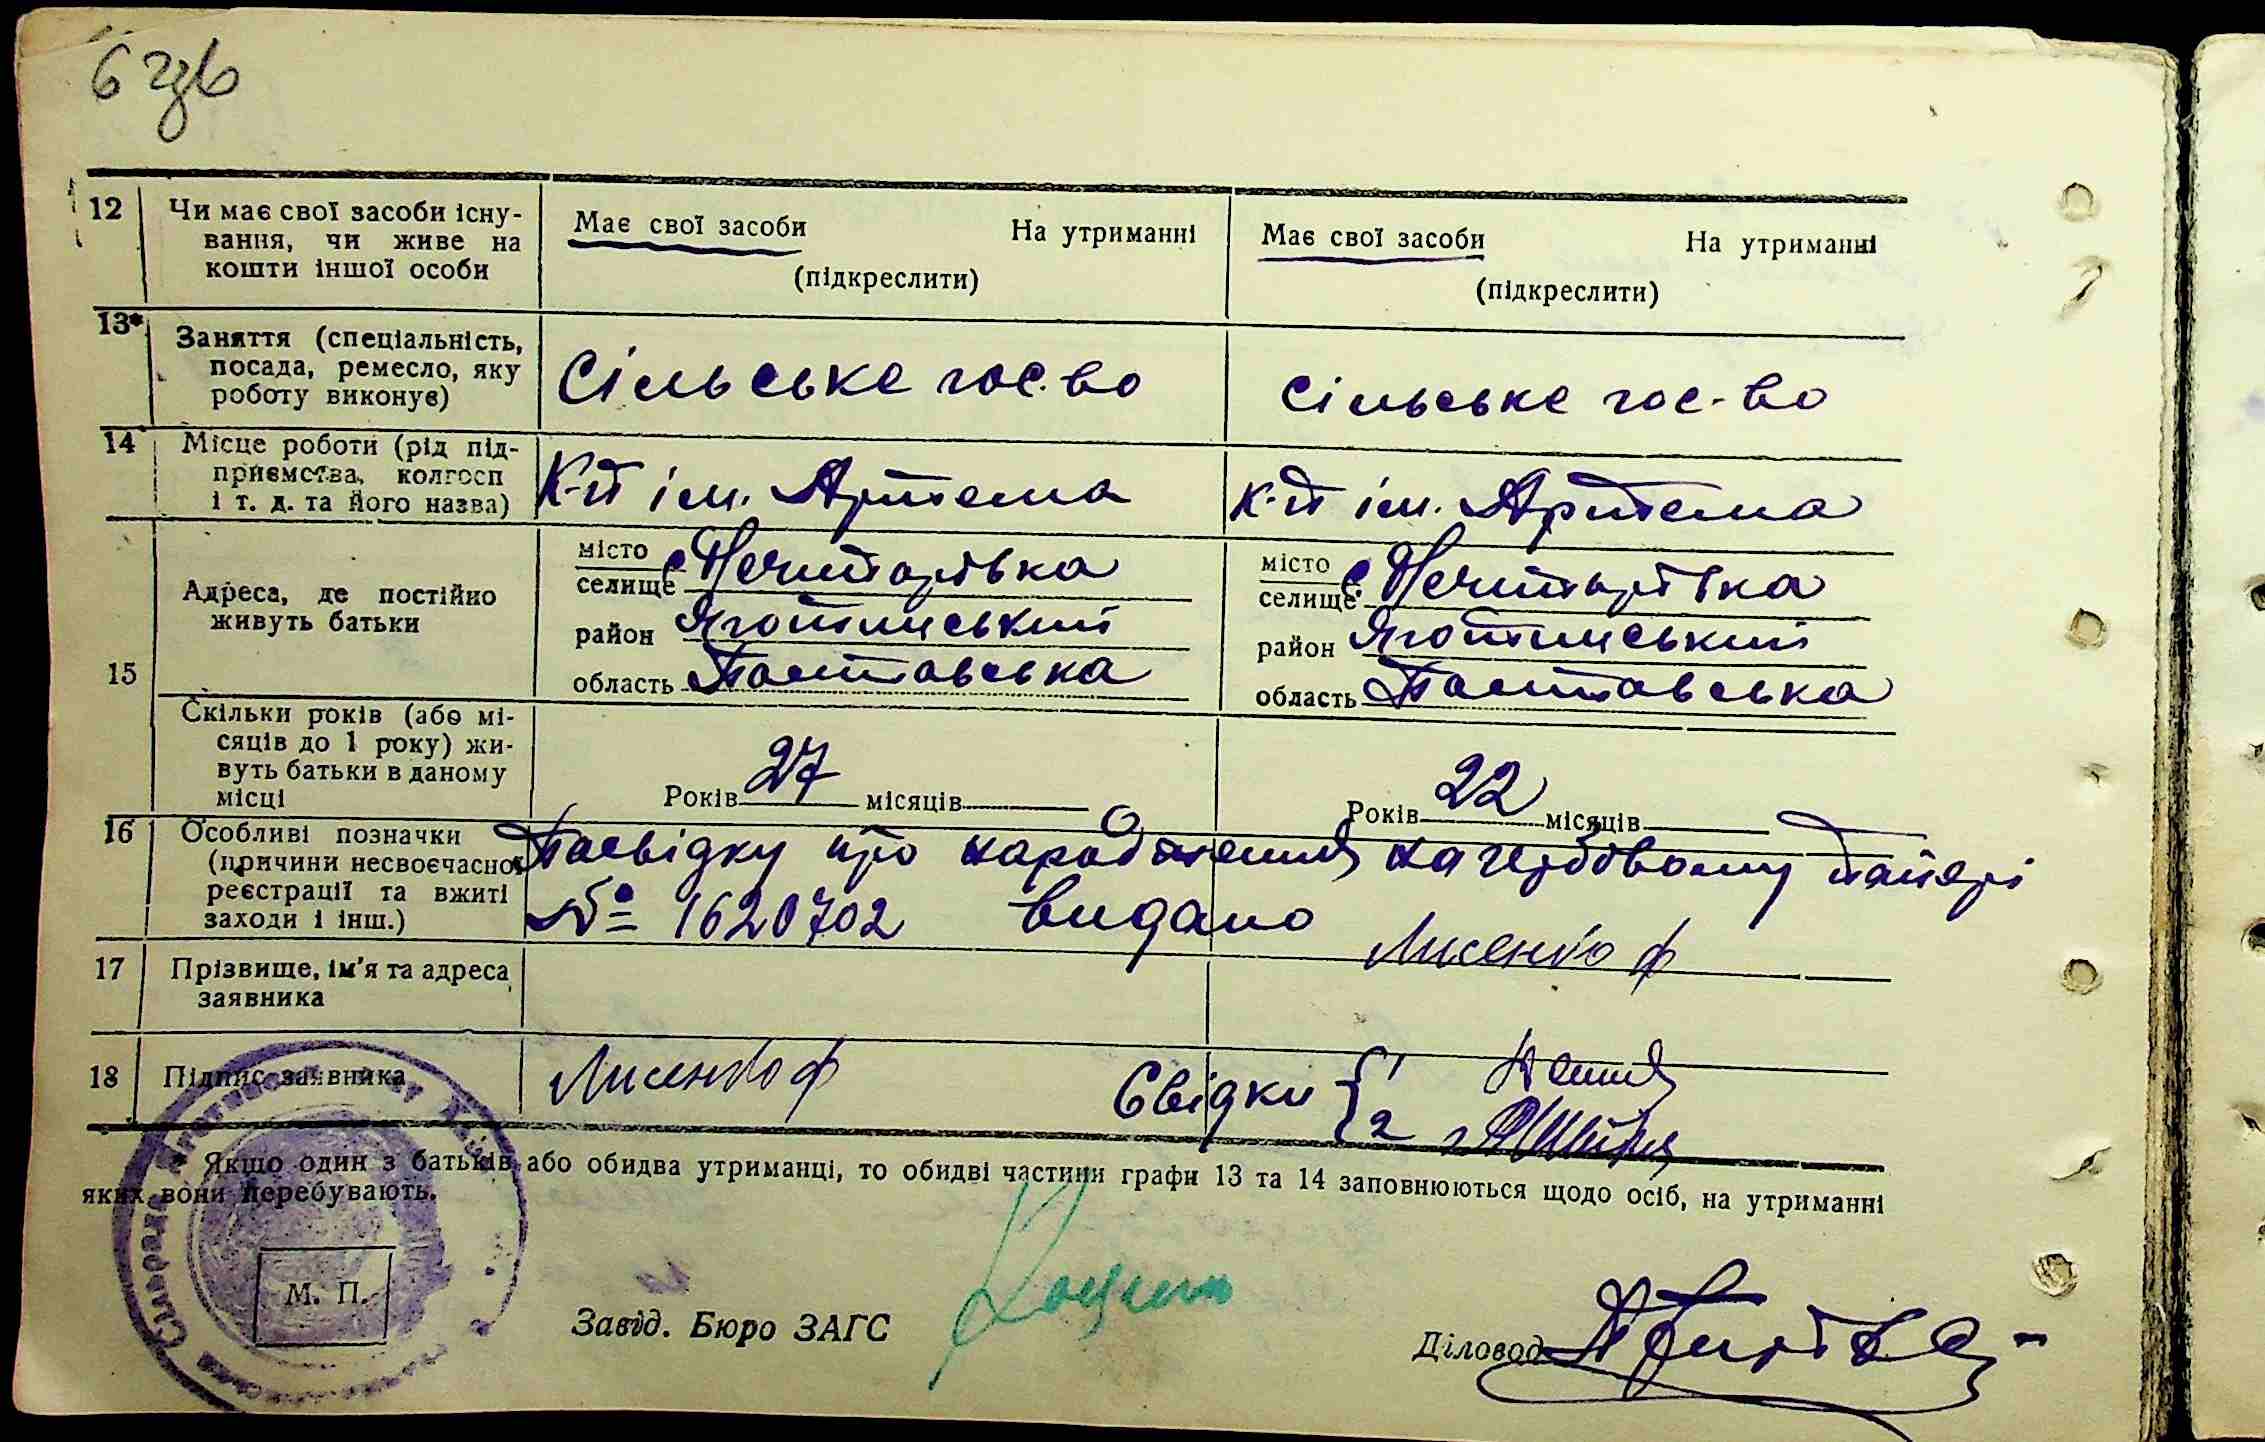 6
12 Чи має свої засоби існу-
вання, чи живе на
кошти іншої особи
Має свої засоби На утриманні
(підкреслити)
Має свої засоби На утриманні
(підкреслити)
13* Заняття (спеціальність,
посада, ремесло, яку
роботу виконує)
Сільське гос-во
Сільське гос-во
14 Місце роботи (рід під-
приємства, колгосп
і т. д. та його назва)
К-п ім. Артема
К-п ім. Артема
15
Адреса, де постійно
живуть батьки
місто
селище с Нечипорівка
район Яготинський
область Полтавська
місто
селище с Нечипорівка
район Яготинський
область Полтавська
Скільки років (або мі-
сяців до 1 року) жи-
вуть батьки в даному
місці
Років 27 місяців
Років 22 місяців
16 Особливі позначки
(причини несвоєчасної
реєстрації та вжиті
заходи і інш.)
Посвідку про народження на гербовому папері
№ 1620702 видано
Лисенко Ф
17 Прізвище, ім'я та адреса
заявника
18 Підпис заявника
Лисенко Ф
Свідки 1
2
* Якщо один з батьків або обидва утриманці, то обидві частини графи 13 та 14 заповнюються щодо осіб, на утриманні
яких вони перебувають.
М. П.
Завід. Бюро ЗАГС
Діловод